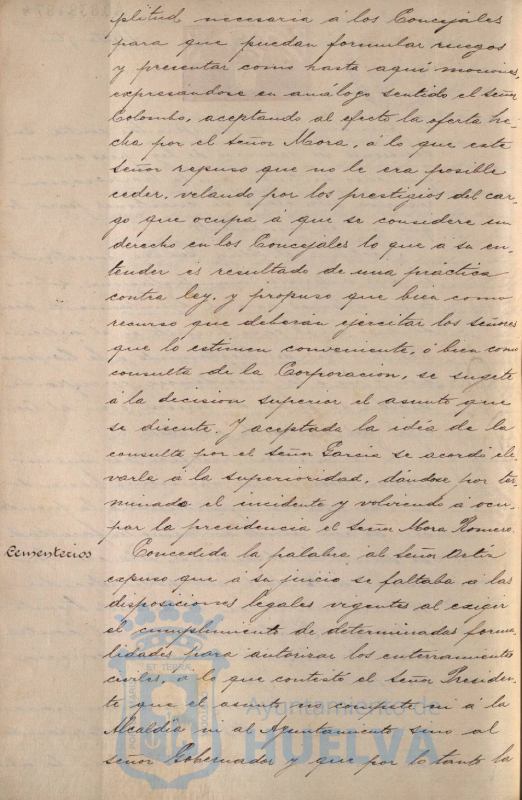 plitud necesaria á los Concejales
para que puedan formular ruegos
y presentar como hasta aquí mociones,
expresandose en análogo sentido el señor
Colombo, aceptando al efecto la oferta he-
cha por el señor Mora, á lo que este
señor repuso que no le era posible
ceder, velando por los prestigios del car-
go que ocupa á que se considere un
derecho en los Concejales lo que a su en-
tender es resultado de una práctica
contra ley, y propuso que bien como
recurso que deberán ejercitar los señores
que lo estimen conveniente, ó bien como
consulta de la Corporacion, se sugete
á la decision superior el asunto que
se discute. Y aceptada la idea de la
consulta por el señor Garcia se acordó ele-
varla á la superioridad, dándose por ter-
minado el incidente y volviendo á ocu-
par la presidencia el señor Mora Romero.
Cementerios
Concedida la palabra al señor Ortiz
expuso que á su juicio se faltaba a las
disposiciones legales vigentes al exigir
el cumplimiento de determinadas forma-
lidades para autorizar los enterramientos
civiles, á lo que contestó el señor Presiden-
te que el asunto no compete ni á la
Alcaldía ni al Ayuntamiento sino al
señor Gobernador y que por lo tanto la
Ayuntamiento de
HUELVA